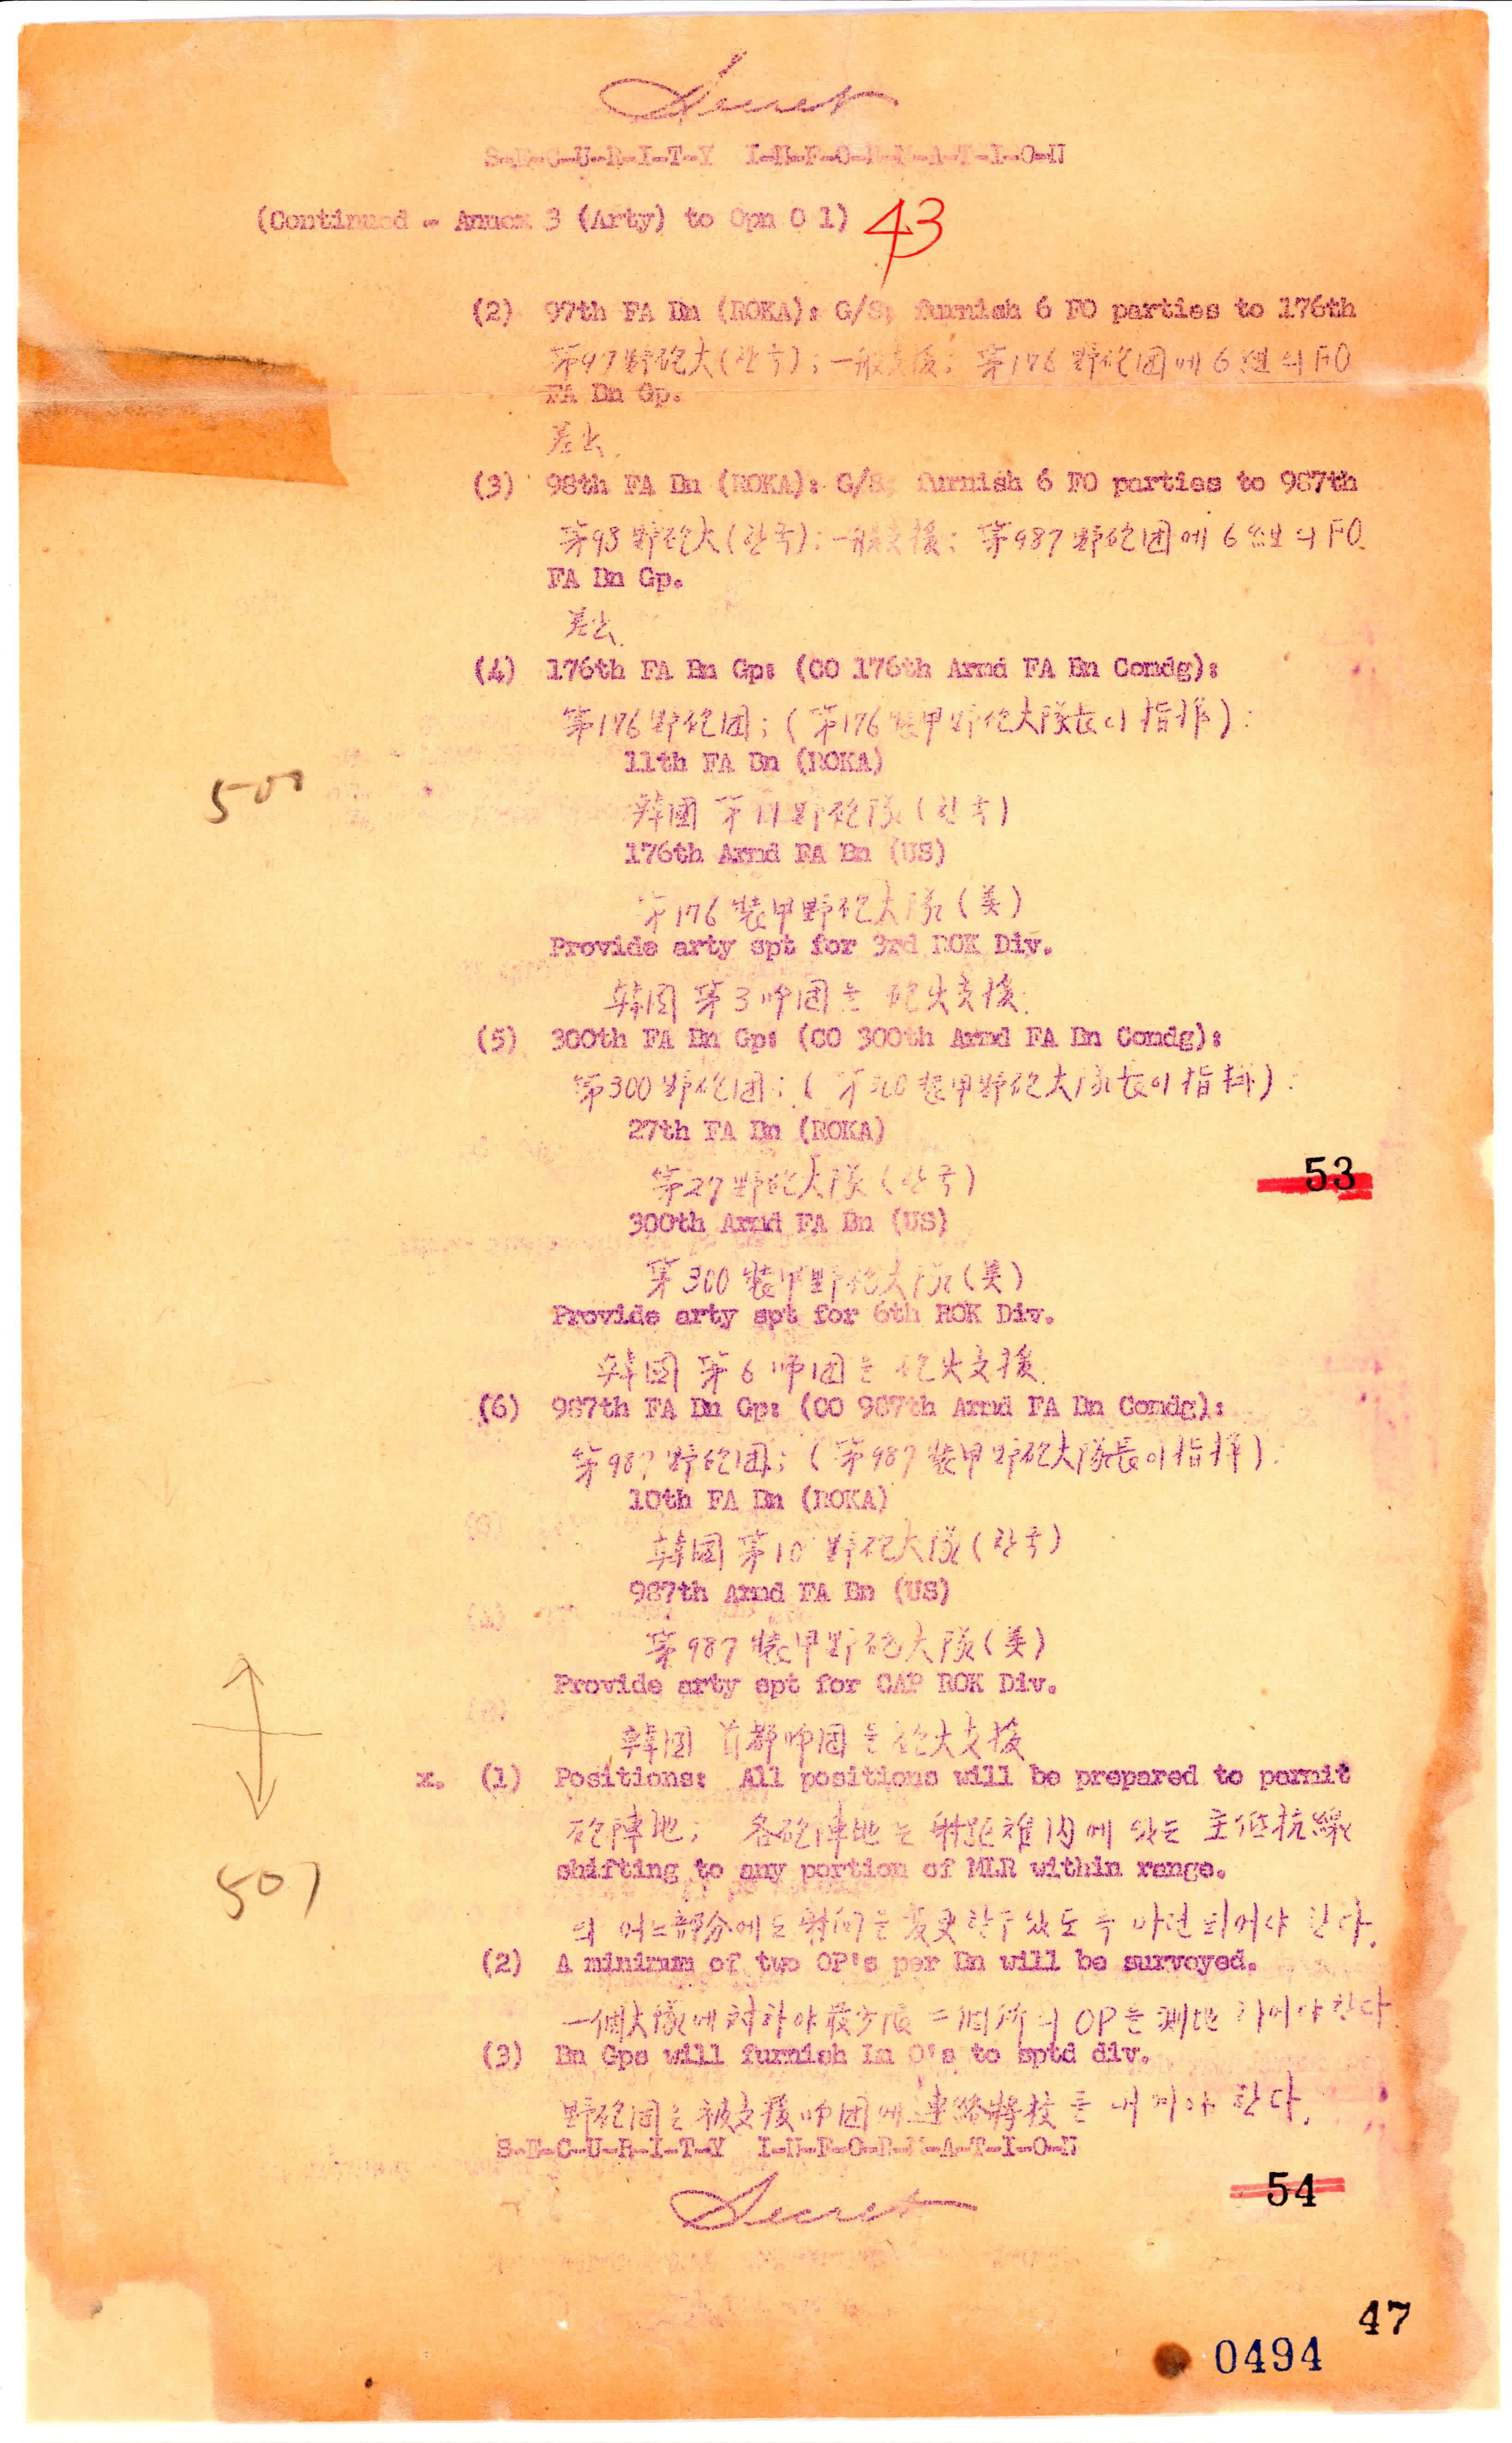 Secret
S-E-C-U-R-I-T-Y I-N-F-O-R-M-A-T-I-O-N
(Continued - Annex 3 (Arty) to Opn O 1) 43
(2) 97th FA Bn (ROKA): G/S; furnish 6 FO parties to 176th
第97野砲大(한국); 一般支援; 第176野砲団에 6組의 FO
FA Bn Gp.
差出.
(3) 98th FA Bn (ROKA): G/S; furnish 6 FO parties to 987th
第98野砲大(한국); 一般支援; 第987野砲団에 6組의 FO
FA Bn Gp.
差出.
(4) 176th FA Bn Gp: (CO 176th Armd FA Bn Comdg):
第176野砲団; (第176装甲野砲大隊長이 指揮):
11th FA Bn (ROKA)
500
韓國 第11野砲隊(한국)
176th Armd FA Bn (US)
第176装甲野砲大隊(美)
Provide arty spt for 3rd ROK Div.
韓国 第3师団을 砲火支援.
(5) 300th FA Bn Gp: (CO 300th Armd FA Bn Comdg):
第300野砲団; (第300装甲野砲大隊長이 指揮):
27th FA Bn (ROKA)
第27野砲大隊(한국)
53
300th Armd FA Bn (US)
第300装甲野砲大隊(美)
Provide arty spt for 6th ROK Div.
韓国 第6师団을 砲火支援.
(6) 987th FA Bn Gp: (CO 987th Armd FA Bn Comdg):
第987野砲団; (第987装甲野砲大隊長이 指揮):
10th FA Bn (ROKA)
韓国 第10野砲大隊(한국)
987th Armd FA Bn (US)
第987装甲野砲大隊(美)
Provide arty spt for CAP ROK Div.
韓国 首都师団을 砲火支援
x. (1) Positions: All positions will be prepared to permit
砲陣地; 各砲陣地는 射距離内에 있는 主抵抗線
shifting to any portion of MLR within range.
507
의 어느部分에도 射向을 変更할수있도록 마련되어야 한다.
(2) A minimum of two OP's per Bn will be surveyed.
一個大隊에 対하야 最少限 二個所의 OP를 測地하여야한다
(3) Bn Gps will furnish Ln O's to sptd div.
野砲団은 被支援师団에 連絡將校를 내져야 한다.
S-E-C-U-R-I-T-Y I-N-F-O-R-M-A-T-I-O-N
Secret
54
47
0494